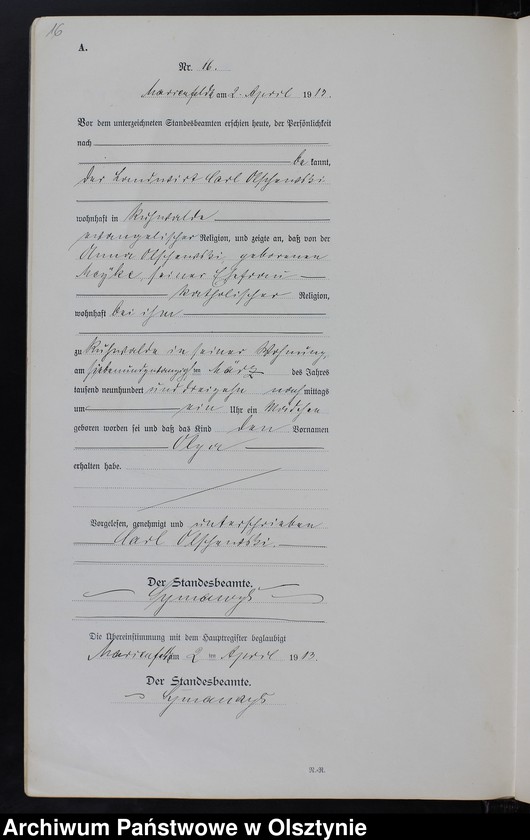 16
A.
Nr. 16.
Marienfelde am 2. April 1913.
Vor dem unterzeichneten Standesbeamten erschien heute, der Persönlichkeit
nach
be kannt,
der Landwirt Carl Olschewski
wohnhaft in Ruhwalde
evangelischer Religion, und zeigte an, daß von der
Anna Olschewski, geborenen
seiner Ehefrau
katholischer Religion,
wohnhaft bei ihm
zu Ruhwalde in seiner Wohnung
am siebenundzwanzigsten März des Jahres
tausend neunhundert und dreizehn nach mittags
um ein Uhr ein Mädchen
geboren worden sei und daß das Kind den Vornamen
Olga
erhalten habe.
Vorgelesen, genehmigt und unterschrieben
Carl Olschewski.
Der Standesbeamte.
Die Übereinstimmung mit dem Hauptregister beglaubigt
Marienfelde am 2 ten April 1913.
Der Standesbeamte.
N.-R.
Archiwum Państwowe w Olsztynie